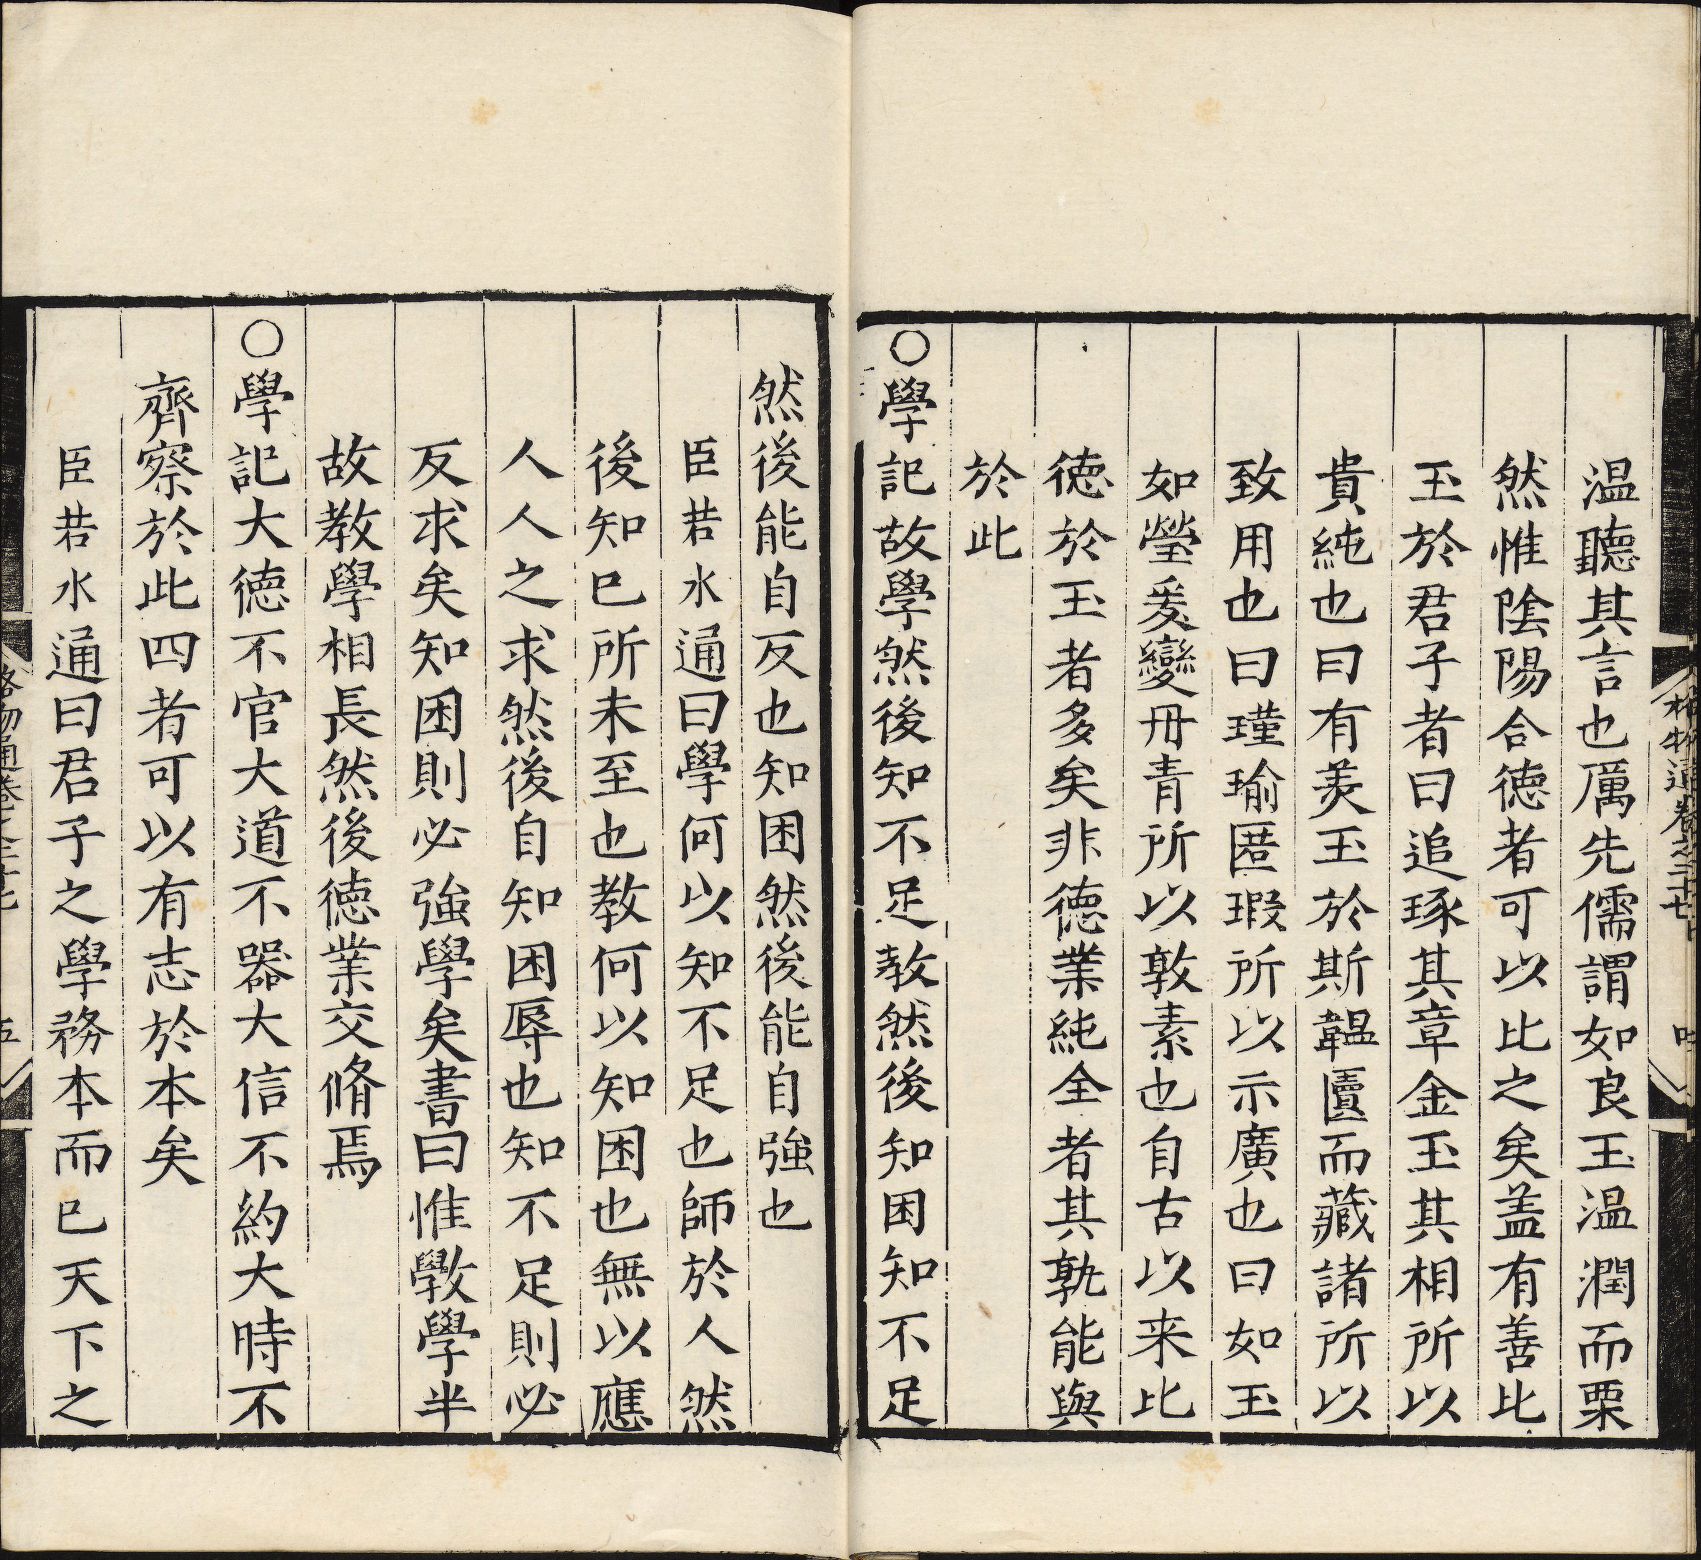 温聽其言也厲先儒謂如良玉温潤而栗
然惟陰陽合德者可以比之矣盖有善比
玉於君子者曰追琢其章金玉其相所以
貴純也曰有美玉於斯韞匵而藏諸所以
致用也曰瑾瑜匿瑕所以示廣也曰如玉
如瑩爰變丹青所以敦素也自古以来比
德於玉者多矣非德業純全者其孰能與
於此
○學記故學然後知不足教然後知困知不足
然後能自反也知困然後能自強也
臣若水通曰學何以知不足也師於人然
後知已所未至也教何以知困也無以應
人人之求然後自知困辱也知不足則必
反求矣知困則必強學矣書曰惟斆學半
故教學相長然後德業交脩焉
○學記大德不官大道不器大信不約大時不
齊察於此四者可以有志於本矣
臣若水通曰君子之學務本而已天下之
格物通卷之二十七
五